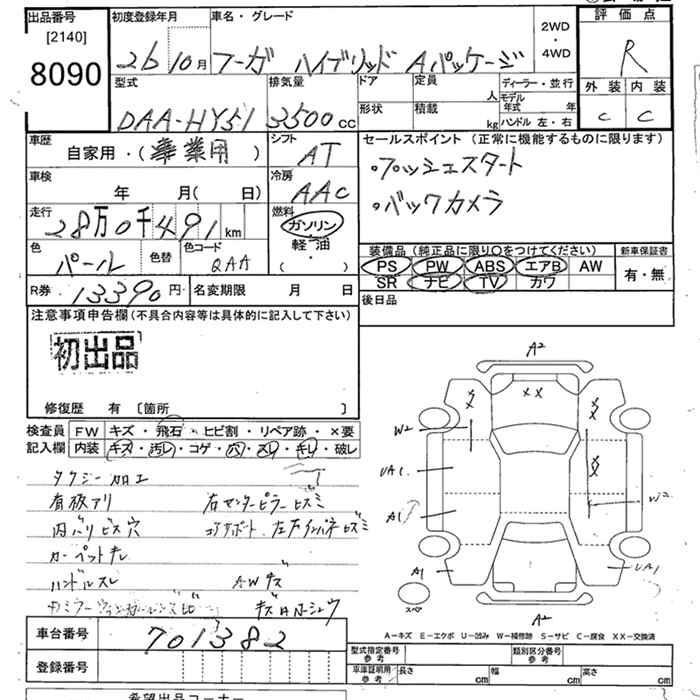 出品番号
[2140]
8090
初度登録年月
26 10月
車名・グレード
フーガ ハイブリッド Aパッケージ
2WD
・
4WD
評価点
R
外装 内装
C C
型式
DAA-HY51
排気量
3500cc
ドア
形状
定員 人
積載 kg
ディーラー・並行
モデル年式 年
ハンドル 左・右
車歴
自家用・(事業用)
シフト
AT
セールスポイント (正常に機能するものに限ります)
・プッシュスタート
・バックカメラ
車検
年 月(日)
冷房
AAC
走行
28万0千491km
燃料
ガソリン
・
軽・油
( ・ )
色
パール
色替
色コード
QAA
装備品 (純正品に限り○をつけてください)
PS PW ABS エアB AW
SR ナビ TV カワ
新車保証書
有・無
R券 13390円
名変期限 月 日
後日品
注意事項申告欄(不具合内容等は具体的に記入して下さい)
初出品
修復歴 有 〔箇所 〕
検査員記入欄
FW キズ・飛石・ヒビ割・リペア跡・×要
内装 キズ・汚レ・コゲ・穴・スレ・キレ・破レ
タクシー加工
看板アリ 右センターピラービズミ
内バリビス穴 コアサポート 左戸インパネビズミ
カーペットキレ
ハンドルスレ AWキズ
A2
XX
W2
UA1
A1
W2
A1
UA1
スペア
A2
車台番号 701382
登録番号
A−キズ E−エクボ U−凹み W−補修跡 S−サビ C−腐食 XX−交換済
型式指定番号 参考
類別区分番号 参考
車庫証明用 参考
長さ cm 幅 cm 高さ cm
希望出品コーナー